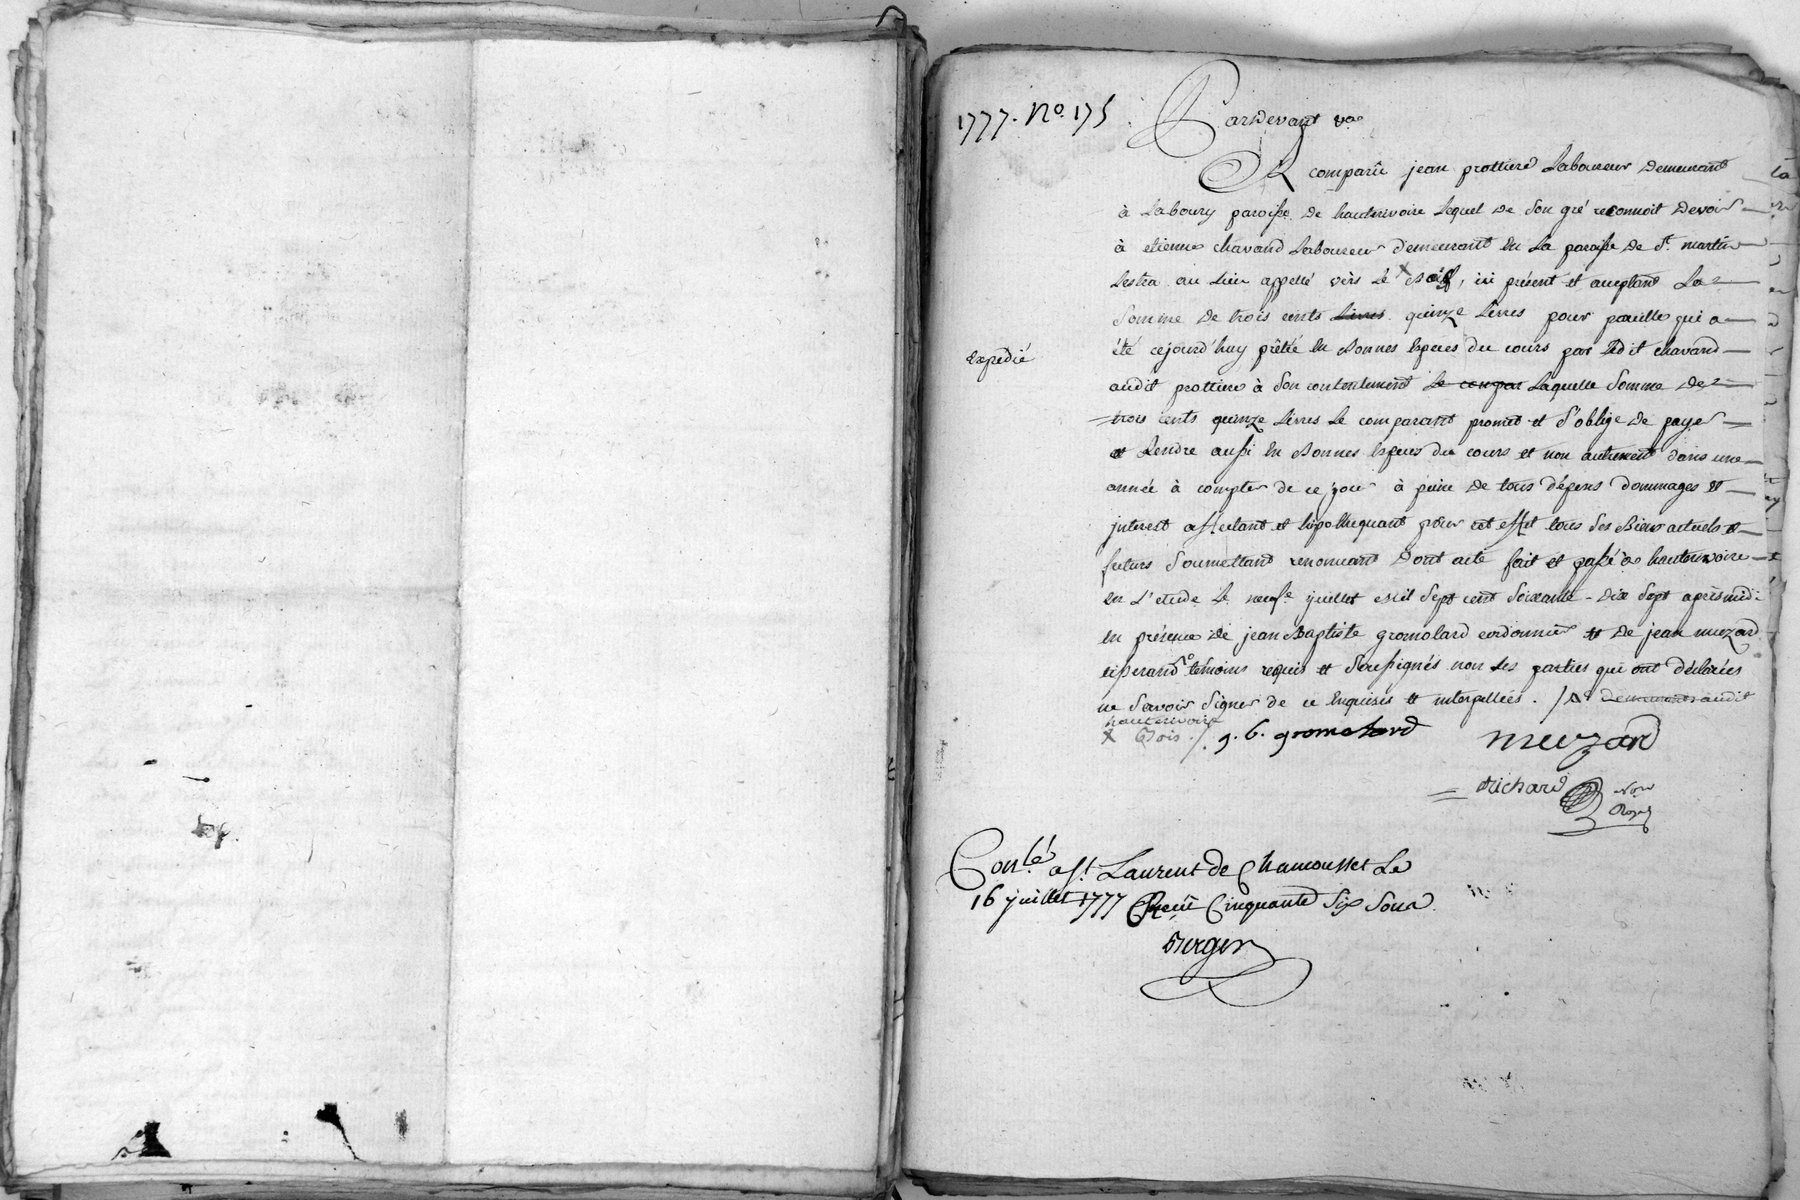 1777. No. 175
Pardevant &a
A comparû jean prottiere Laboureur Demeurant
à Laboury paroisse De hauterivoire Lequel De Son gré reconnoit Devoir
à etienne chavand Laboureur demeurant En La paroisse De St. martin
Lestra au Lieu appellé vèrs Le X Bois, ici présent et acceptant La
Somme De trois cents Livres quinze Livres pour pareille qui a
Expedié
été cejourd'huy prêtée En Bonnes Especes du cours par Ledit chavand
audit prottiere à Son contentement Le compar Laquelle Somme De
trois cents quinze Livres Le comparant promet et S'oblige De payer
et Rendre aussi En Bonnes Especes du cours et non autrement dans une
année à compter de ce jour à peine De tous dépens dommages et
interest affectant et hipothequant pour cet effet tous Ses Biens actuels et
futurs Soumettant renoncant Dont acte fait et passé à hauterivoire
En L'etude Le neuf juillet mil Sept cent Soixante-Dix Sept après midi
En présence De jean Baptiste gromolard cordonnier et De jean muzard
tisserand témoins requis et Soussignés non Les parties qui ont déclarées
ne Savoir Signer de ce Enquises et interpellées. /. Demeurants audit
hauterivoire
X Bois ./. g. b. gromolard muzard
Richard Nore
Royal
Conlé. à St. Laurent de Chamousset Le
16 juillet 1777 Reçû Cinquante Six Sous
Berger